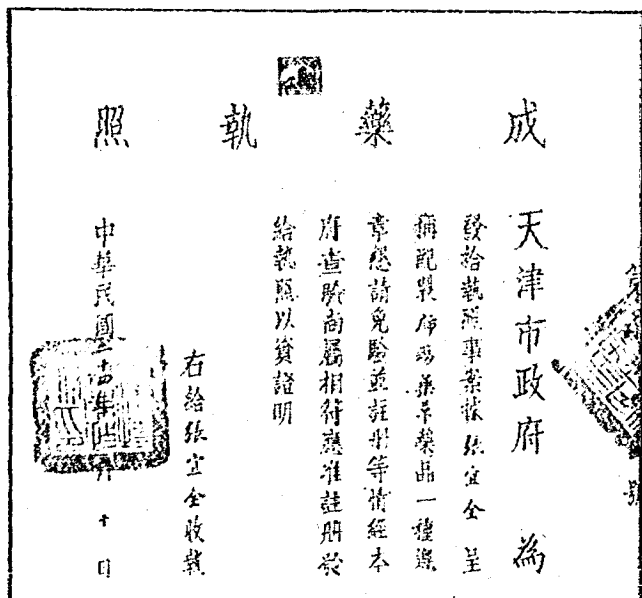 成藥執照
第 號
天津市政府 為
發給執照事案據張宜全呈
稱配製 藥草藥品一種遵
章懇請免驗並註冊等情經本
府查驗尚屬相符應准註冊發
給執照以資證明
右給張宜全收執
中華民國二十四年 月十日